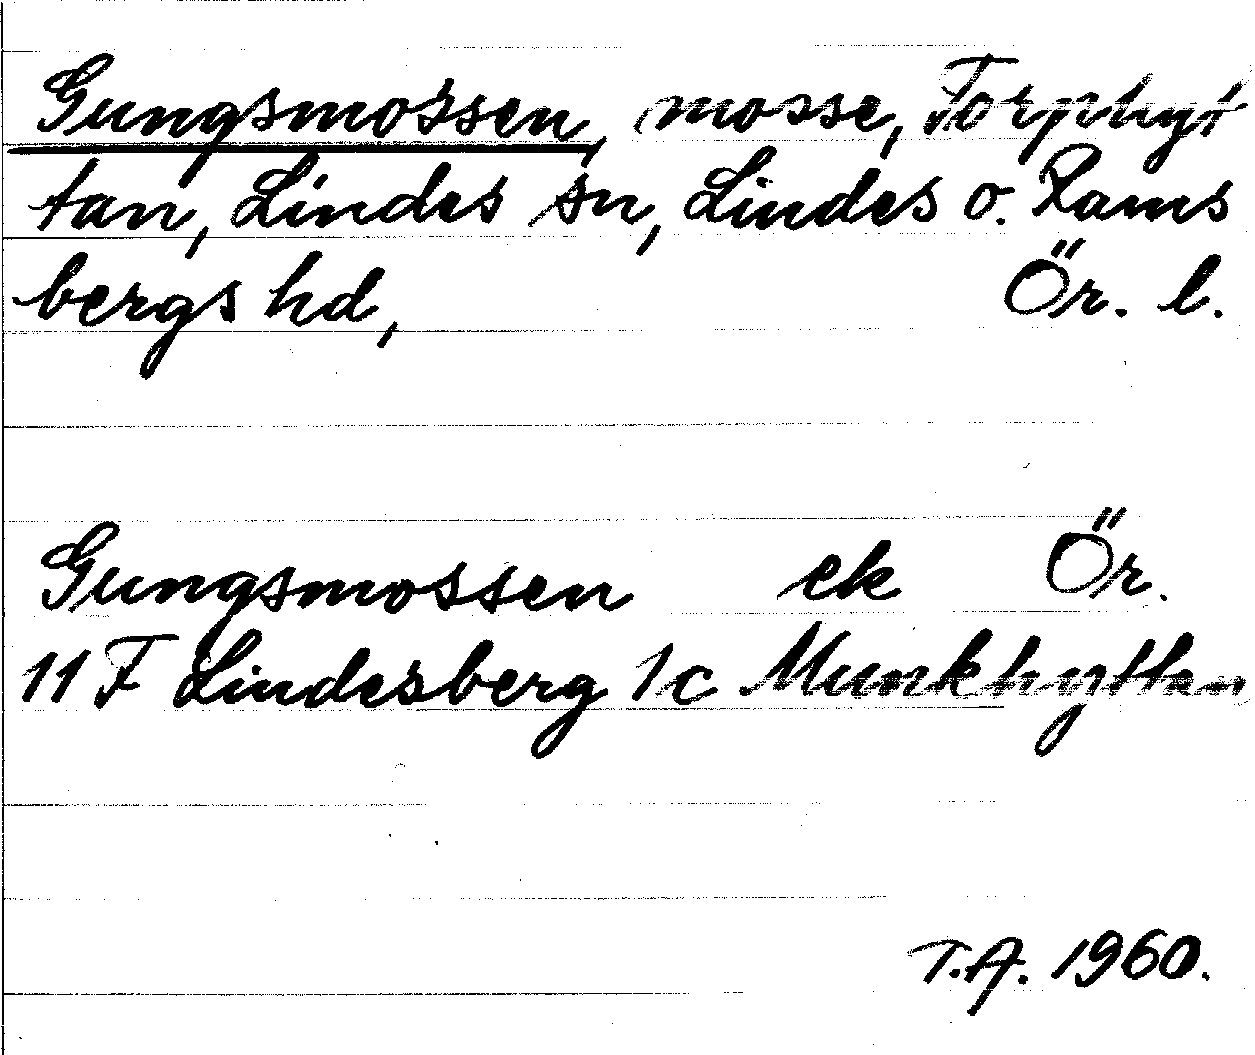 Gungsmossen, mosse, Torphyt
tan, Lindes sn, Lindes o. Rams
bergs hd, Ör. l.
Gungsmossen ek Ör.
11F Lindesberg 1c Munkhyttan
T.A. 1960.